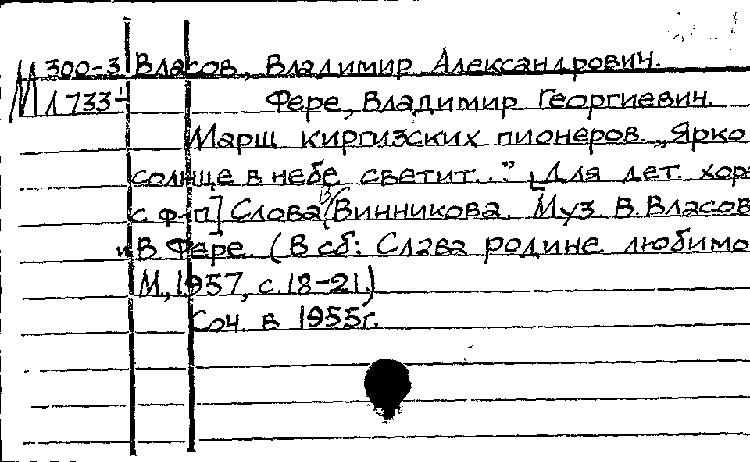 М 300-3 Власов, Владимир Александрович.
М 1733-1 Фере, Владимир Георгиевич.
Марш киргизских пионеров. „Ярко
солнце в небе светит..." [Для дет. хора
с ф-п] Слова В. Винникова. Муз В. Власов
и В Фере. (В сб: Слава родине любимо
М, 1957, с. 18-21.)
Соч. в 1955г.